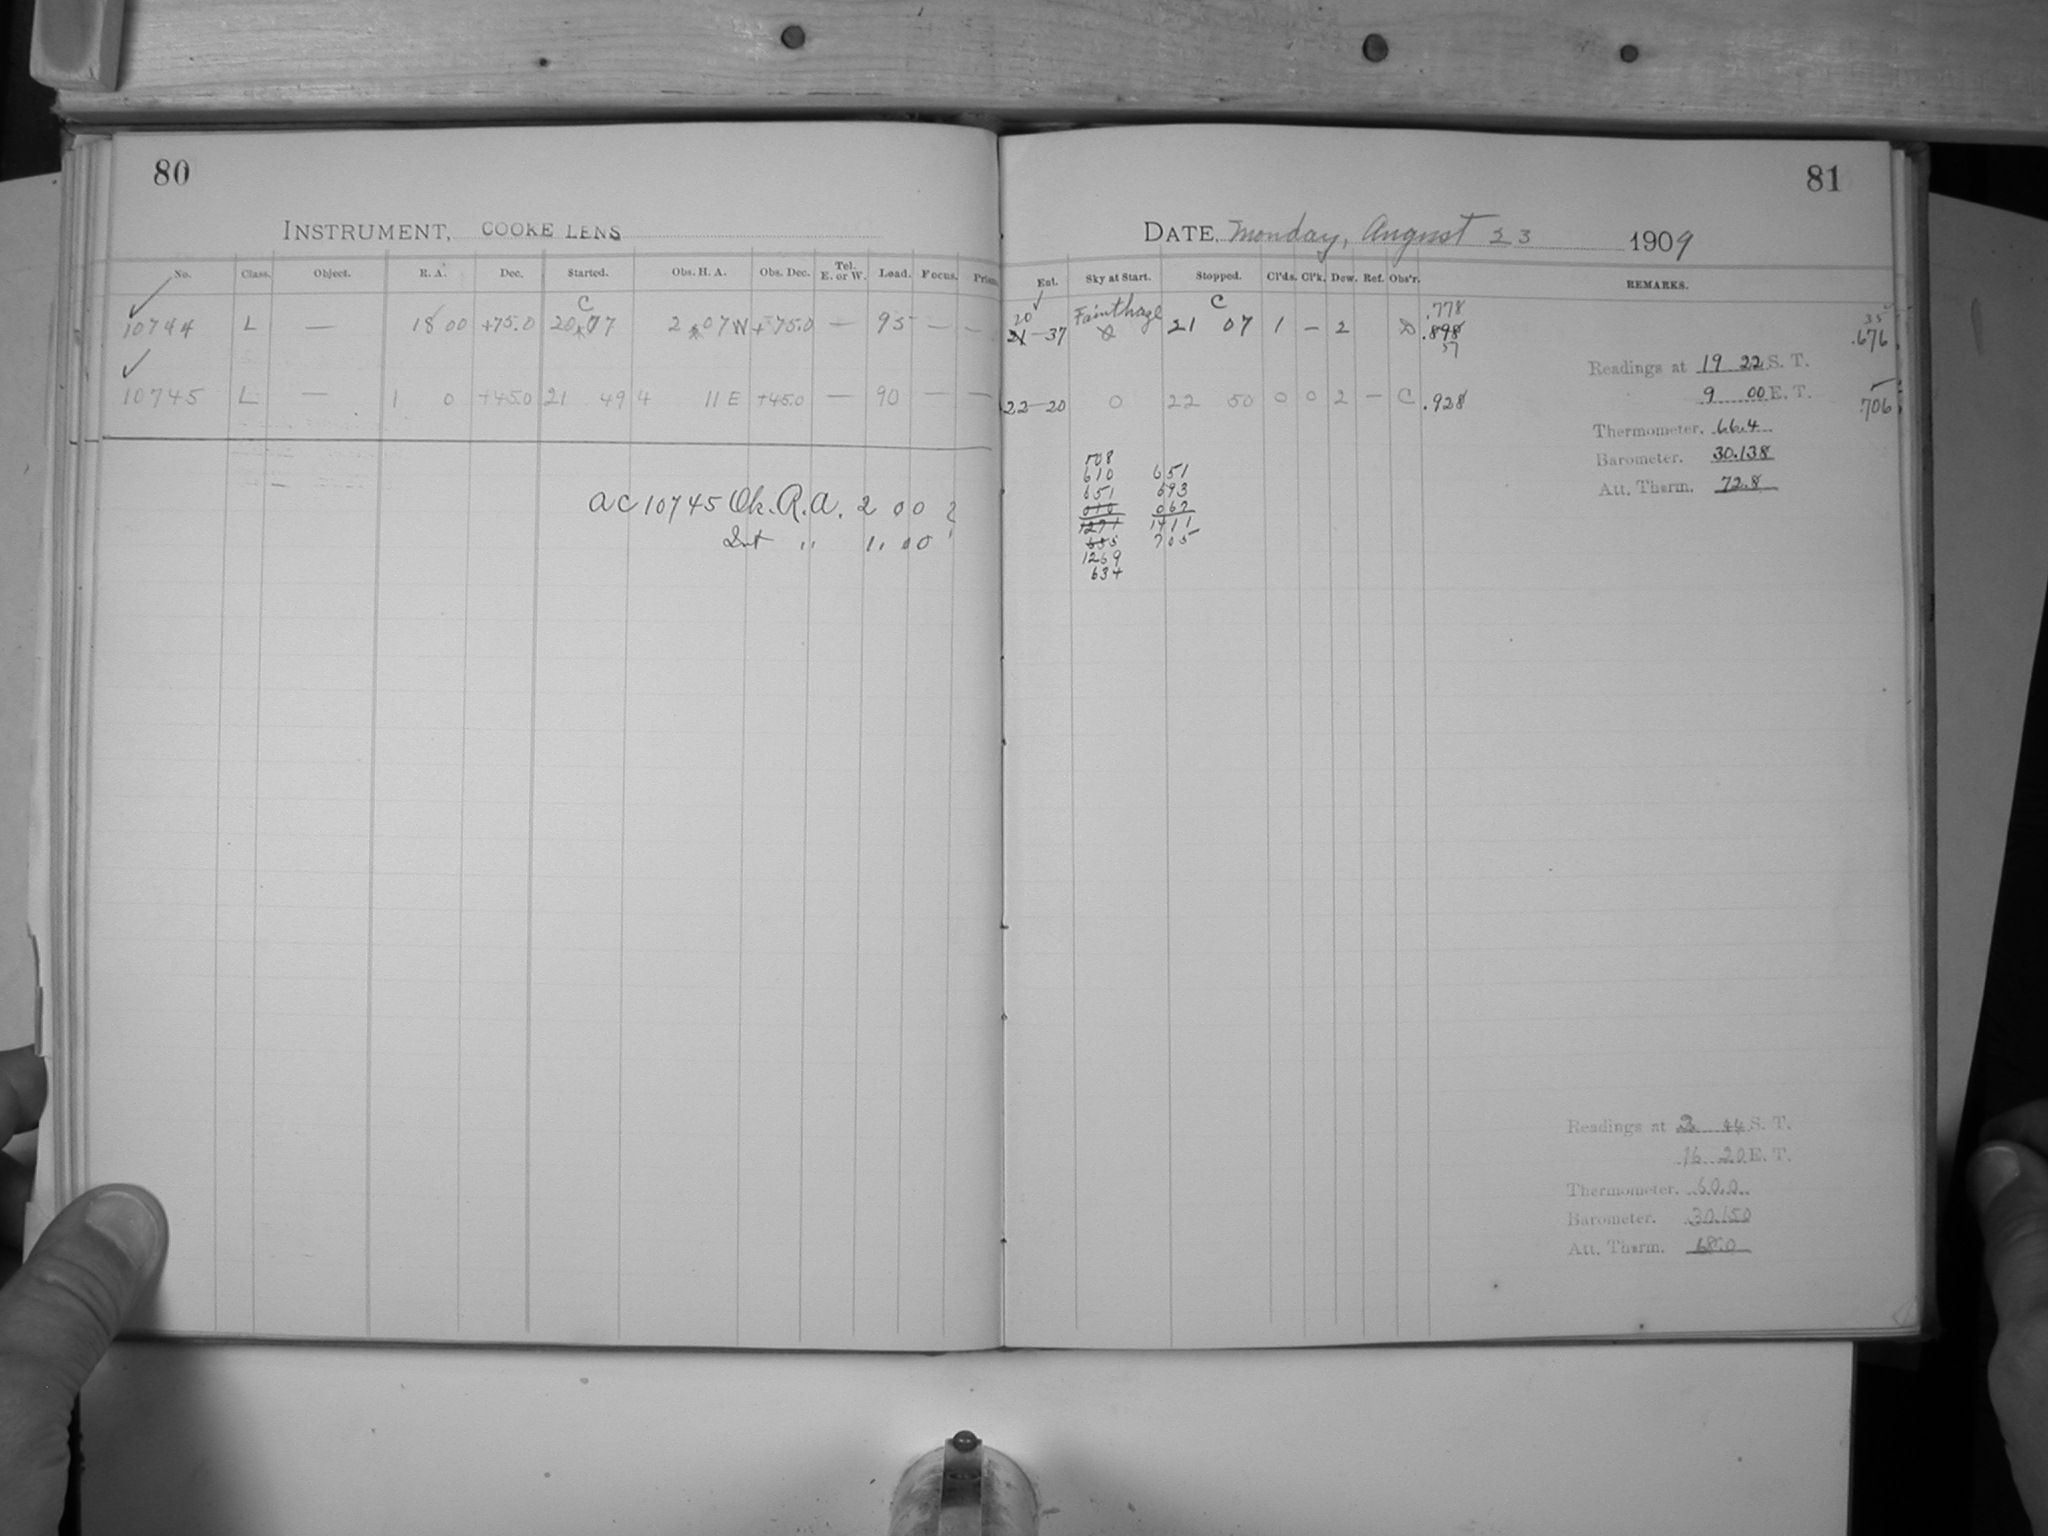 80
INSTRUMENT, COOKE LENS
No. Class. Object. R. A. Dec. Started. Obs. H. A. Obs. Dec. Tel. E. or W. Load. Focus. Prism.
C
10744 L — 18 00 +75.0 20 07 2 07 W +75.0 — 95 — —
10745 L — 1 0 +45.0 21 49 4 11 E +45.0 — 90 — —
AC 10745 Ch. R.A. 2 00
" 1. 00
81
DATE, Monday, August 23 1909
Ent. Sky at Start. Stopped. Cl'ds. Cl'k. Dew. Ref. Obs'r. REMARKS.
20 Faint haze C .778 35
21-37 21 07 1 — 2 .898 .676
57
22-20 0 22 50 0 0 2 — C .928 .706
Readings at 19 22 S. T.
9 00 E. T.
Thermometer. 66.4
Barometer. 30.138
Att. Therm. 72.8
708
610 651
651 693
010 067
1271 1411
635 705
1269
634
Readings at 2 44 S. T.
16 20 E. T.
Thermometer. 60.0
Barometer. 30.150
Att. Therm. 68.0